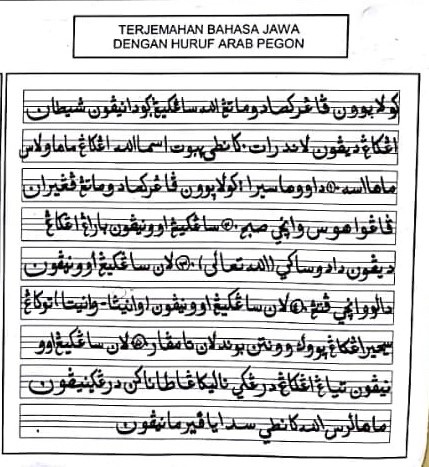 TERJEMAHAN BAHASA JAWA
DENGAN HURUF ARAB PEGON
كولا پوون ڤاڠركصا دوماتڠ الله ساڠكيڠ ݢودانيڤون شيطان
اڠكاڠ ديڤون لاندرات. كانطي پبوت اسما الله اڠكاڠ ماها ولاس
ماها اسه. داووها سيرا: كولا پوون ڤاڠركصا دوماتڠ ڤڠيران
صبح. ساڠكيڠ اوونيڤون باراڠ اڠكاڠ
ديڤون دادوساكي (الله تعالى). لان ساڠكيڠ اوونيڤون
دالو ڤتڠ. لان ساڠكيڠ اوونيڤون اوانيتا-وانيتا توكاڠ
سحير اڠكاڠ پوول وونتن بوندلان تامڤار. لان ساڠكيڠ اوو
نيڤون تياڠ اڠكاڠ درڠكي ناليكا ڠاطاناكن درڠكينيڤون
ماها لرس الله كانطي سدايا ڤيرمانيڤون